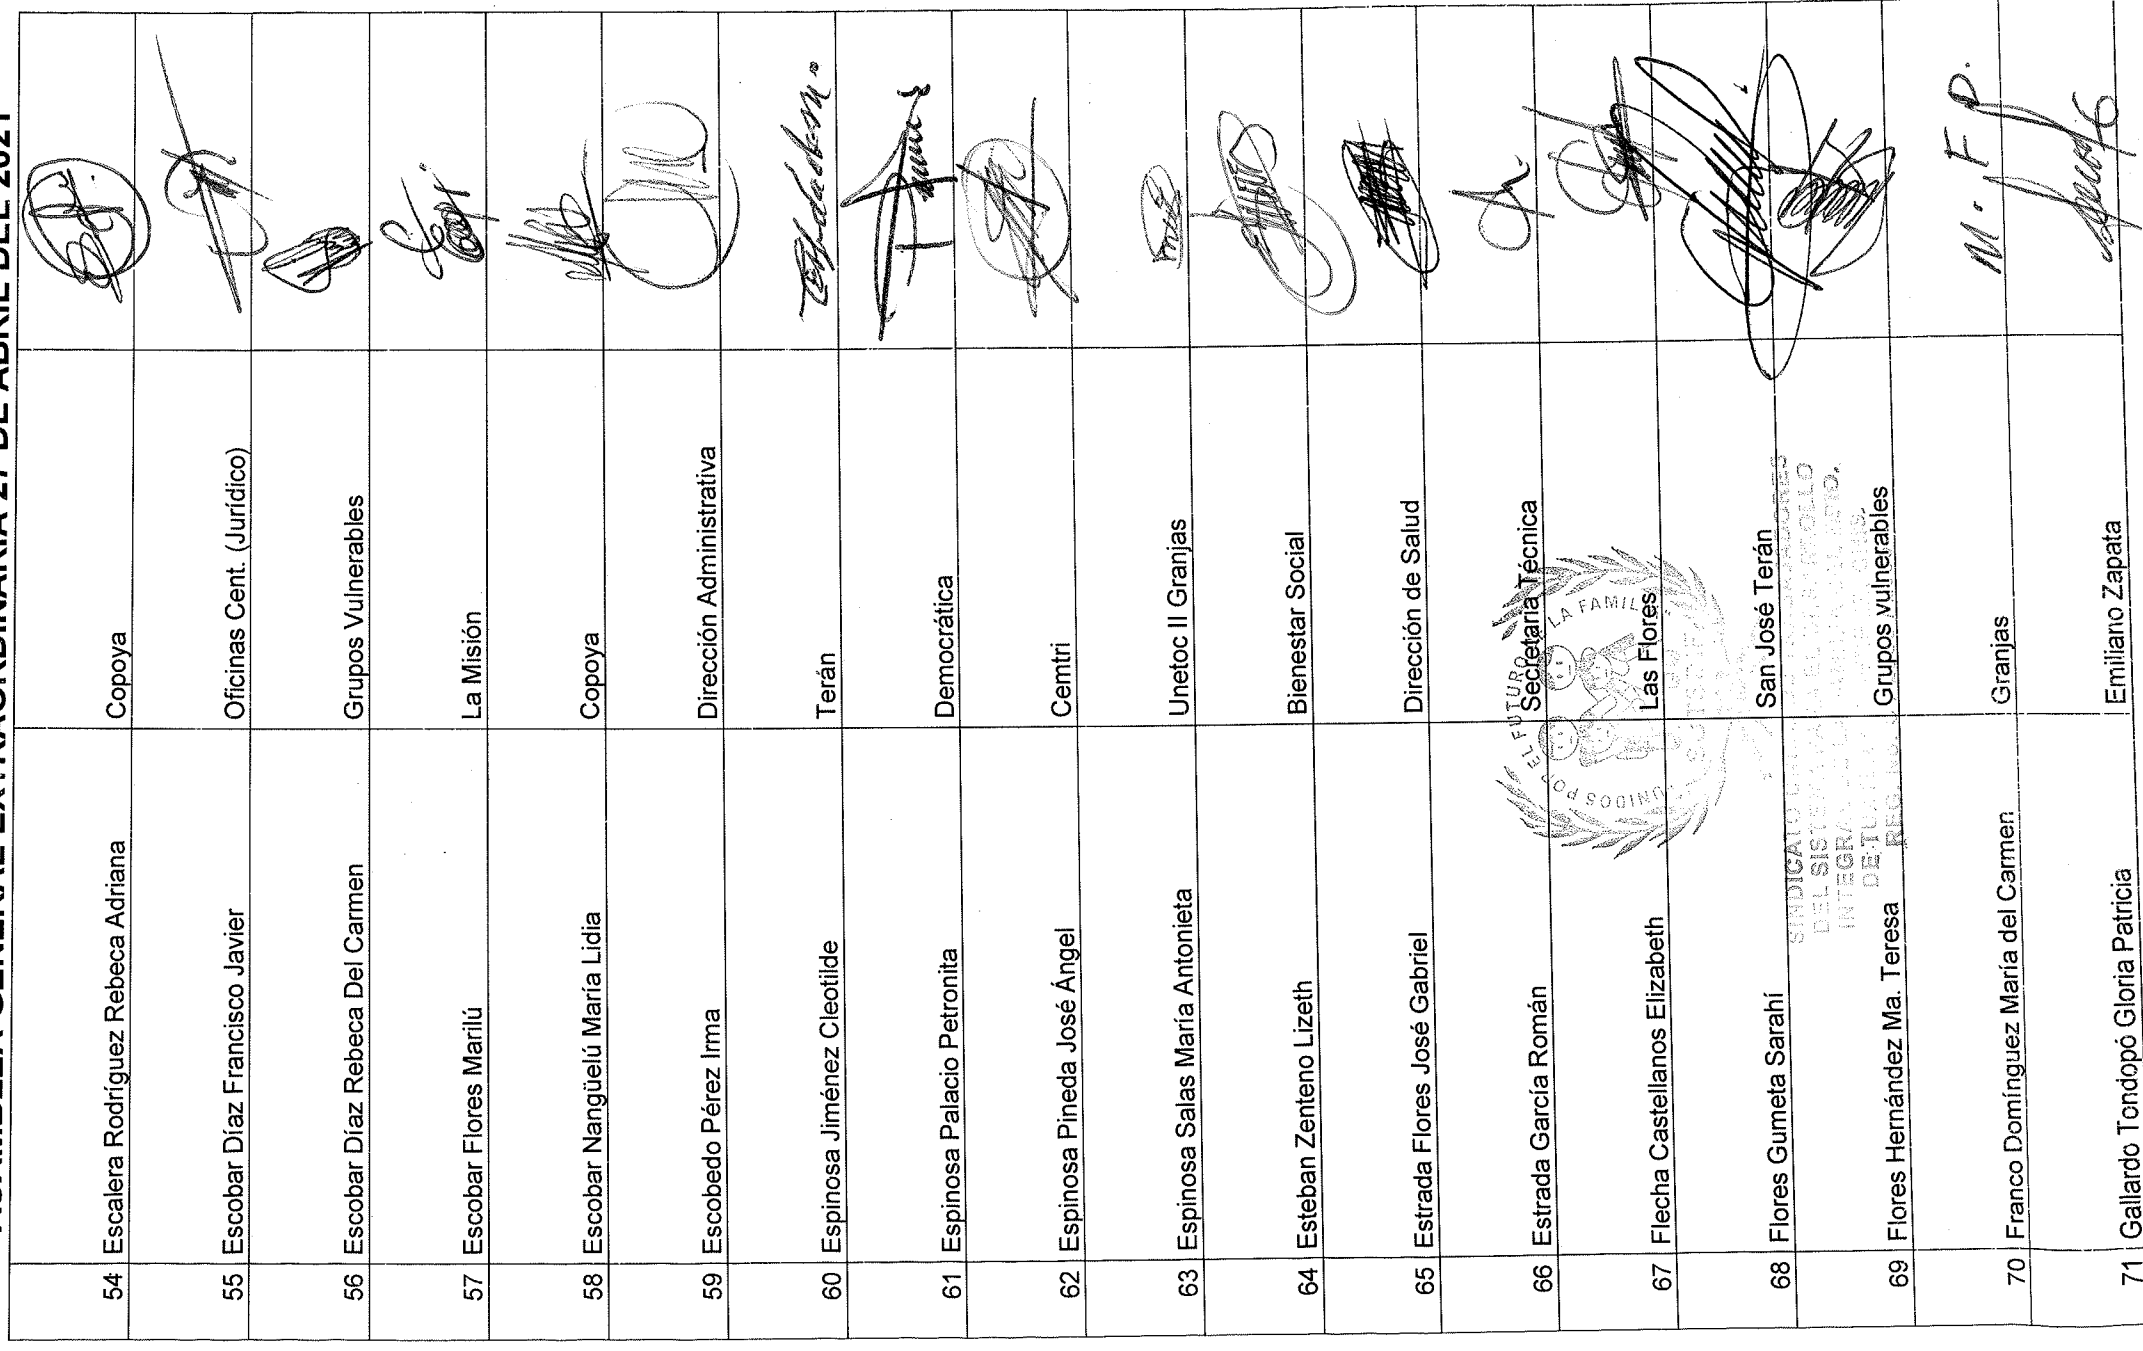 ASAMBLEA GENERAL EXTRAORDINARIA 27 DE ABRIL DEL 2021
54 Escalera Rodríguez Rebeca Adriana Copoya
55 Escobar Díaz Francisco Javier Oficinas Cent. (Jurídico)
56 Escobar Díaz Rebeca Del Carmen Grupos Vulnerables
57 Escobar Flores Marilú La Misión
58 Escobar Nangüelú María Lidia Copoya
59 Escobedo Pérez Irma Dirección Administrativa
60 Espinosa Jiménez Cleotilde Terán
61 Espinosa Palacio Petronita Democrática
62 Espinosa Pineda José Ángel Cemtri
63 Espinosa Salas María Antonieta Unetoc II Granjas
64 Esteban Zenteno Lizeth Bienestar Social
65 Estrada Flores José Gabriel Dirección de Salud
66 Estrada García Román Secretaría Técnica
67 Flecha Castellanos Elizabeth Las Flores
68 Flores Gumeta Sarahí San José Terán
69 Flores Hernández Ma. Teresa Grupos vulnerables
70 Franco Domínguez María del Carmen Granjas M. F D.
71 Gallardo Tondopó Gloria Patricia Emiliano Zapata
UNIDOS POR EL FUTURO LA FAMILIA
SINDICATO
DEL SISTEMA
INTEGRAL
DE TUXTLA
REG. NO.